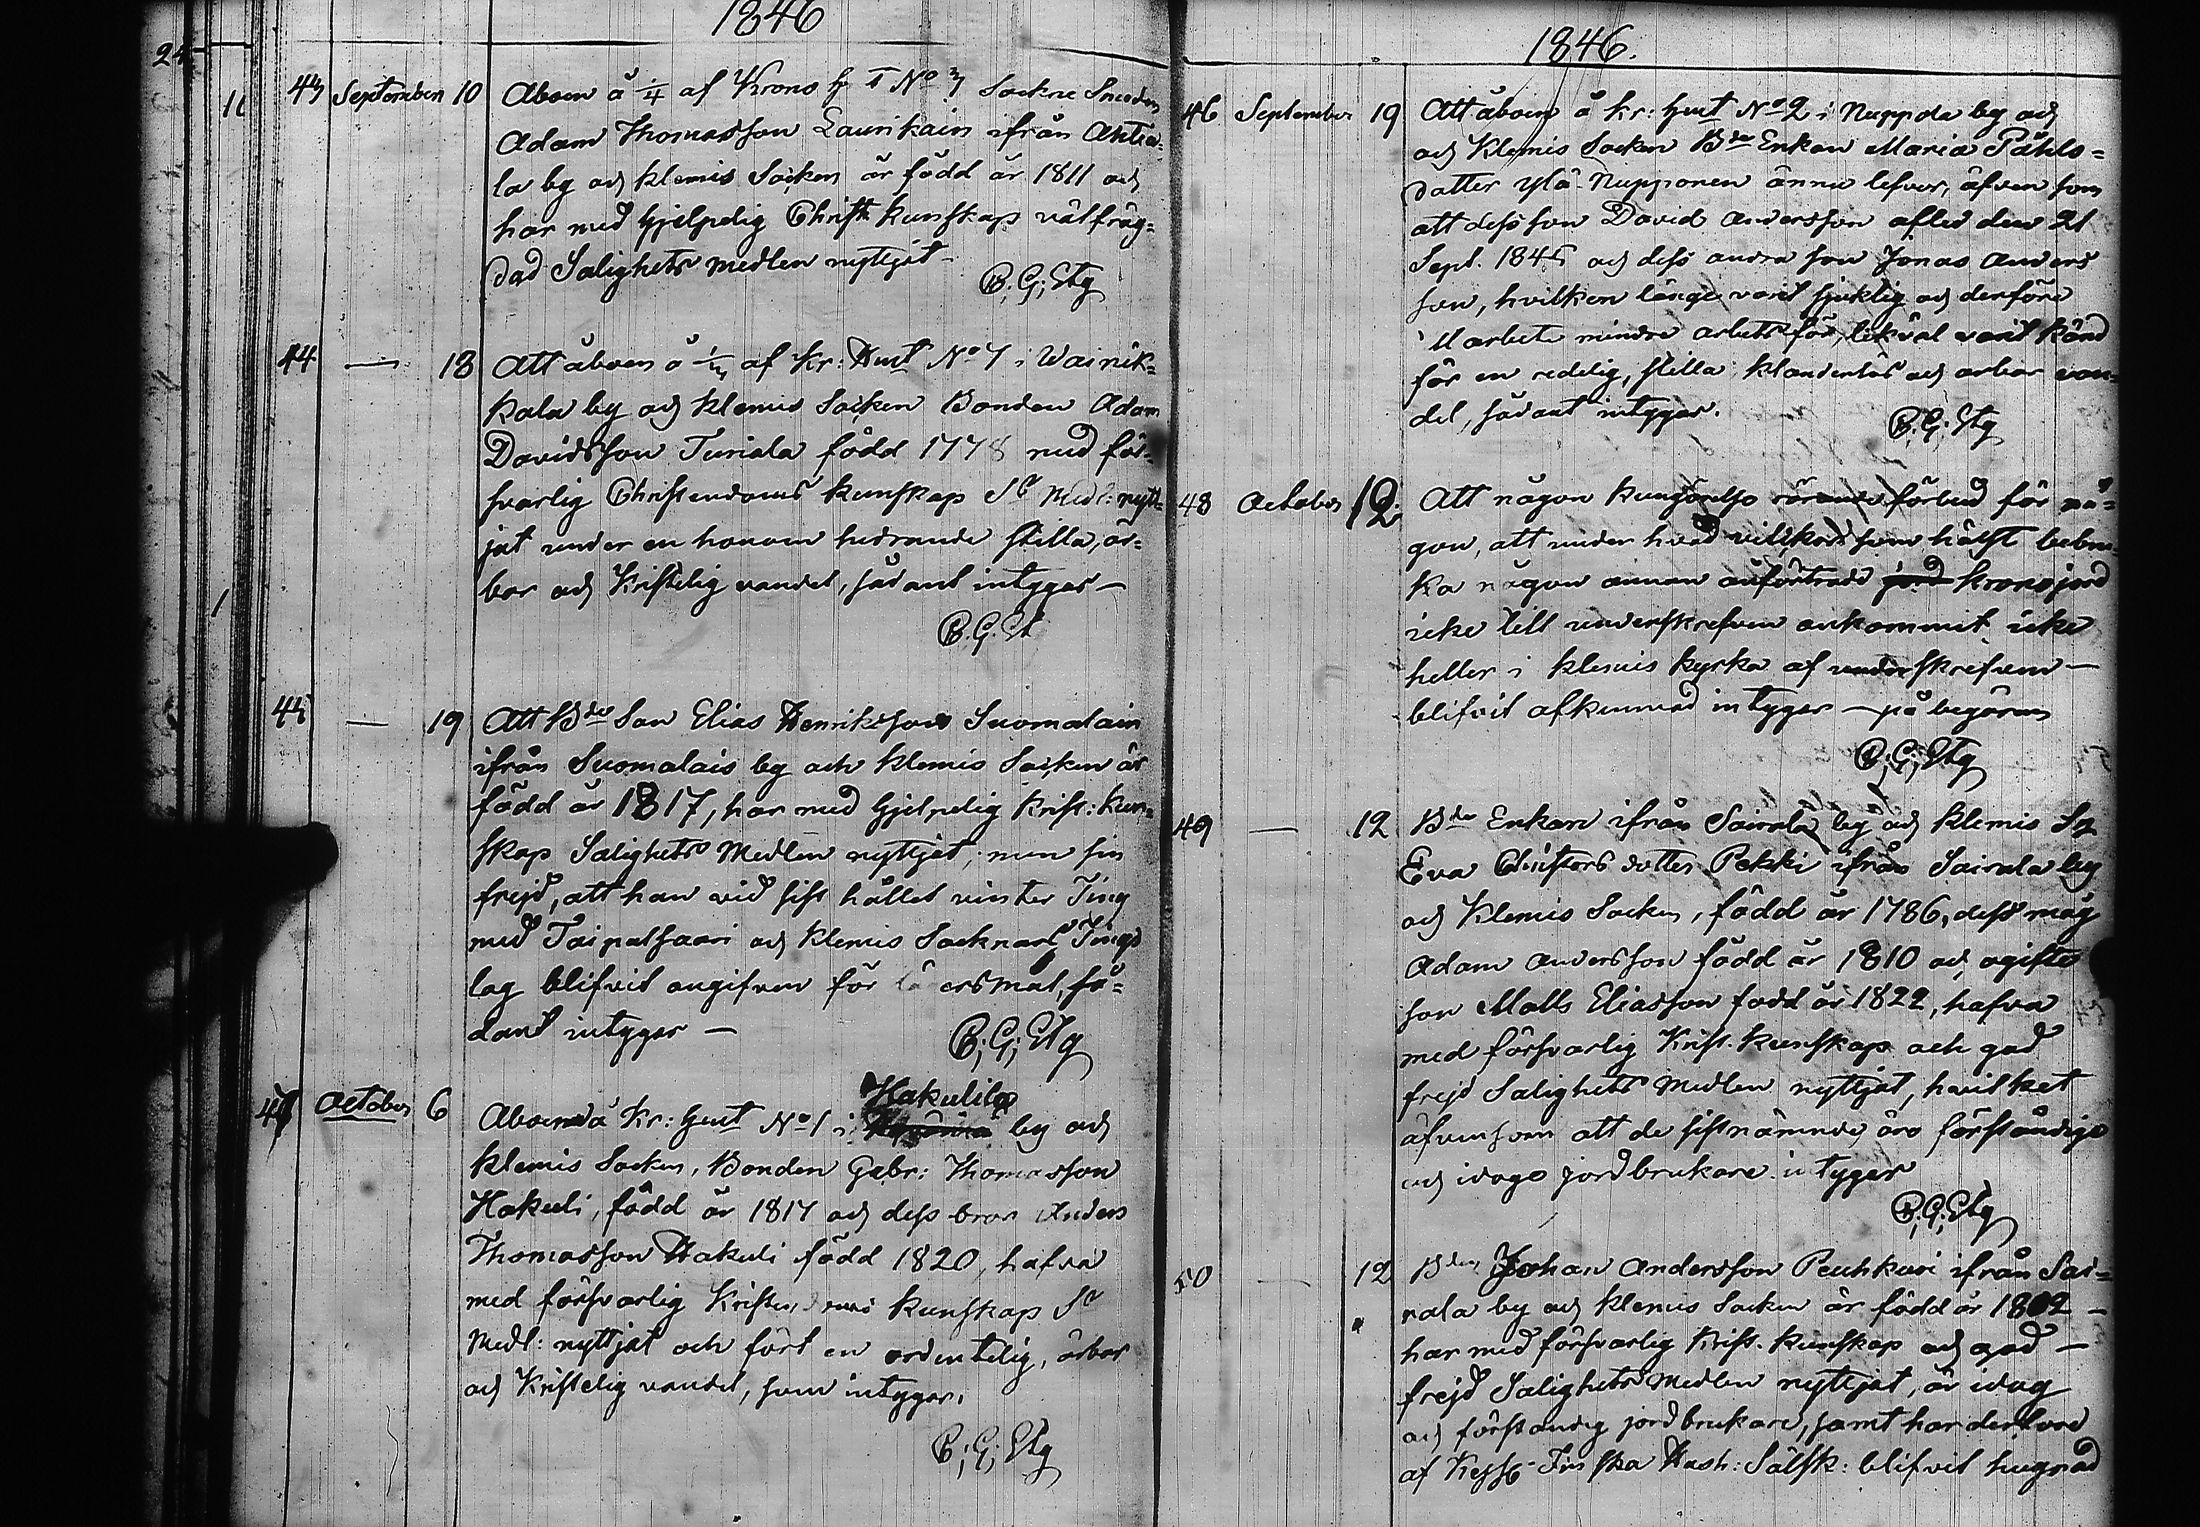 1846
24
11
43 September 10 Åboen å 1/4 af Krono h: No 3 Sockne Smeden
Adam Thomasson Laurikain ifrån Ahtia=
la by och Klemis Socken är född år 1811 och
har med hjelpelig Christ: kunskap välfräg=
dad Salighets medlen nyttjat
B; G; Etg
44 — 18 Att åboen å 1/3 af Kr: Hmt No 7 i Wainik=
kala by och Klemis Socken Bonden Adam
Davidsson Turiala född 1778 med för=
svarlig Christendoms kunskap Sts Medl: nytt=
jat under en honom hedrande stilla, är=
bar och Kristelig vandel, sådant intygar —
B. G. Et
1
45 — 19 Att Bde Son Elias Henriksson Suomalain
ifrån Suomalais by och Klemis Socken är
född år 1817, har med hjelpelig Krist: kun=
skap Salighets Medlen nyttjat; men sin
frejd, att han vid sist hållet vinter Ting
med Taipalsaari och Klemis Socknars Tings
lag blifvit angifven för ersmål, så=
dant intygar —
B; G; Etg
47 October 6 Åboen å Kr: Hmt No 1 i Hakulila by och
Klemis Socken, Bonden Gabr: Thomasson
Hakuli, född år 1817 och dess bror Anders
Thomasson Hakuli född 1820, hafva
med försvarlig Kristendoms kunskap Sts
Medl: nyttjat och fört en ordentelig, ärbar
och Kristelig vandel, som intygar,
B; G; Etg
1846.
46 September 19 Att åboen å Kr: Hmt No 2 i Nuppola by och
och Klemis Socken Bde Enkan Maria Påhls=
dotter Ylä-Nupponen ännu lefver, äfven som
att dess son David Andersson afled den 21
Sept. 1845 och dess andra son Jonas Anders
son, hvilken länge varit sjuklig och derföre
ill arbete mindre arbetsför, likväl varit känd
för en redelig, stilla klanderlös och ärbar van=
del, sådant intygar.
B. G. Etg
48 October 12. Att någon kungörelse rörande förbud för nå=
gon, att under hvad villkor som hälst bebru=
ka någon annan anförtrodd jord kronojord
icke till underskrefven ankommit icke
heller i Klemis kyrka af underskrefven —
blifvit afkunnad intygar — på begäran
B; G; Etg
49 — 12 Bde Enkan ifrån Sairala by och Klemis Sn
Eva Christersdotter Pekki ifrån Sairala by
och Klemis Socken, född år 1786, dess måg
Adam Andersson född år 1810 och ogifte
son Matts Eliasson född år 1822, hafva
med försvarlig Krist. kunskap och god
frejd Salighets Medlen nyttjat, hvilket
äfvensom att de sistnämnde äro förståndige
och idoge jordbrukare intygar
B; G; Etg
50 — 12 Bden Johan Andersson Peuhkuri ifrån Sai=
rala by och Klemis Socken är född år 1802 —
har med försvarlig Krist. kunskap och god —
frejd Salighets Medlen nyttjat, är idog
och förståndig jordbrukare, samt har derföre
af Kejs: Finska Hush: Sälsk: blifvit hugnad